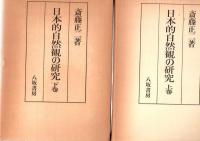 斎藤正二著
日本的自然観の研究 上巻
八坂書房
斎藤正二著
日本的自然観の研究 下巻
八坂書房